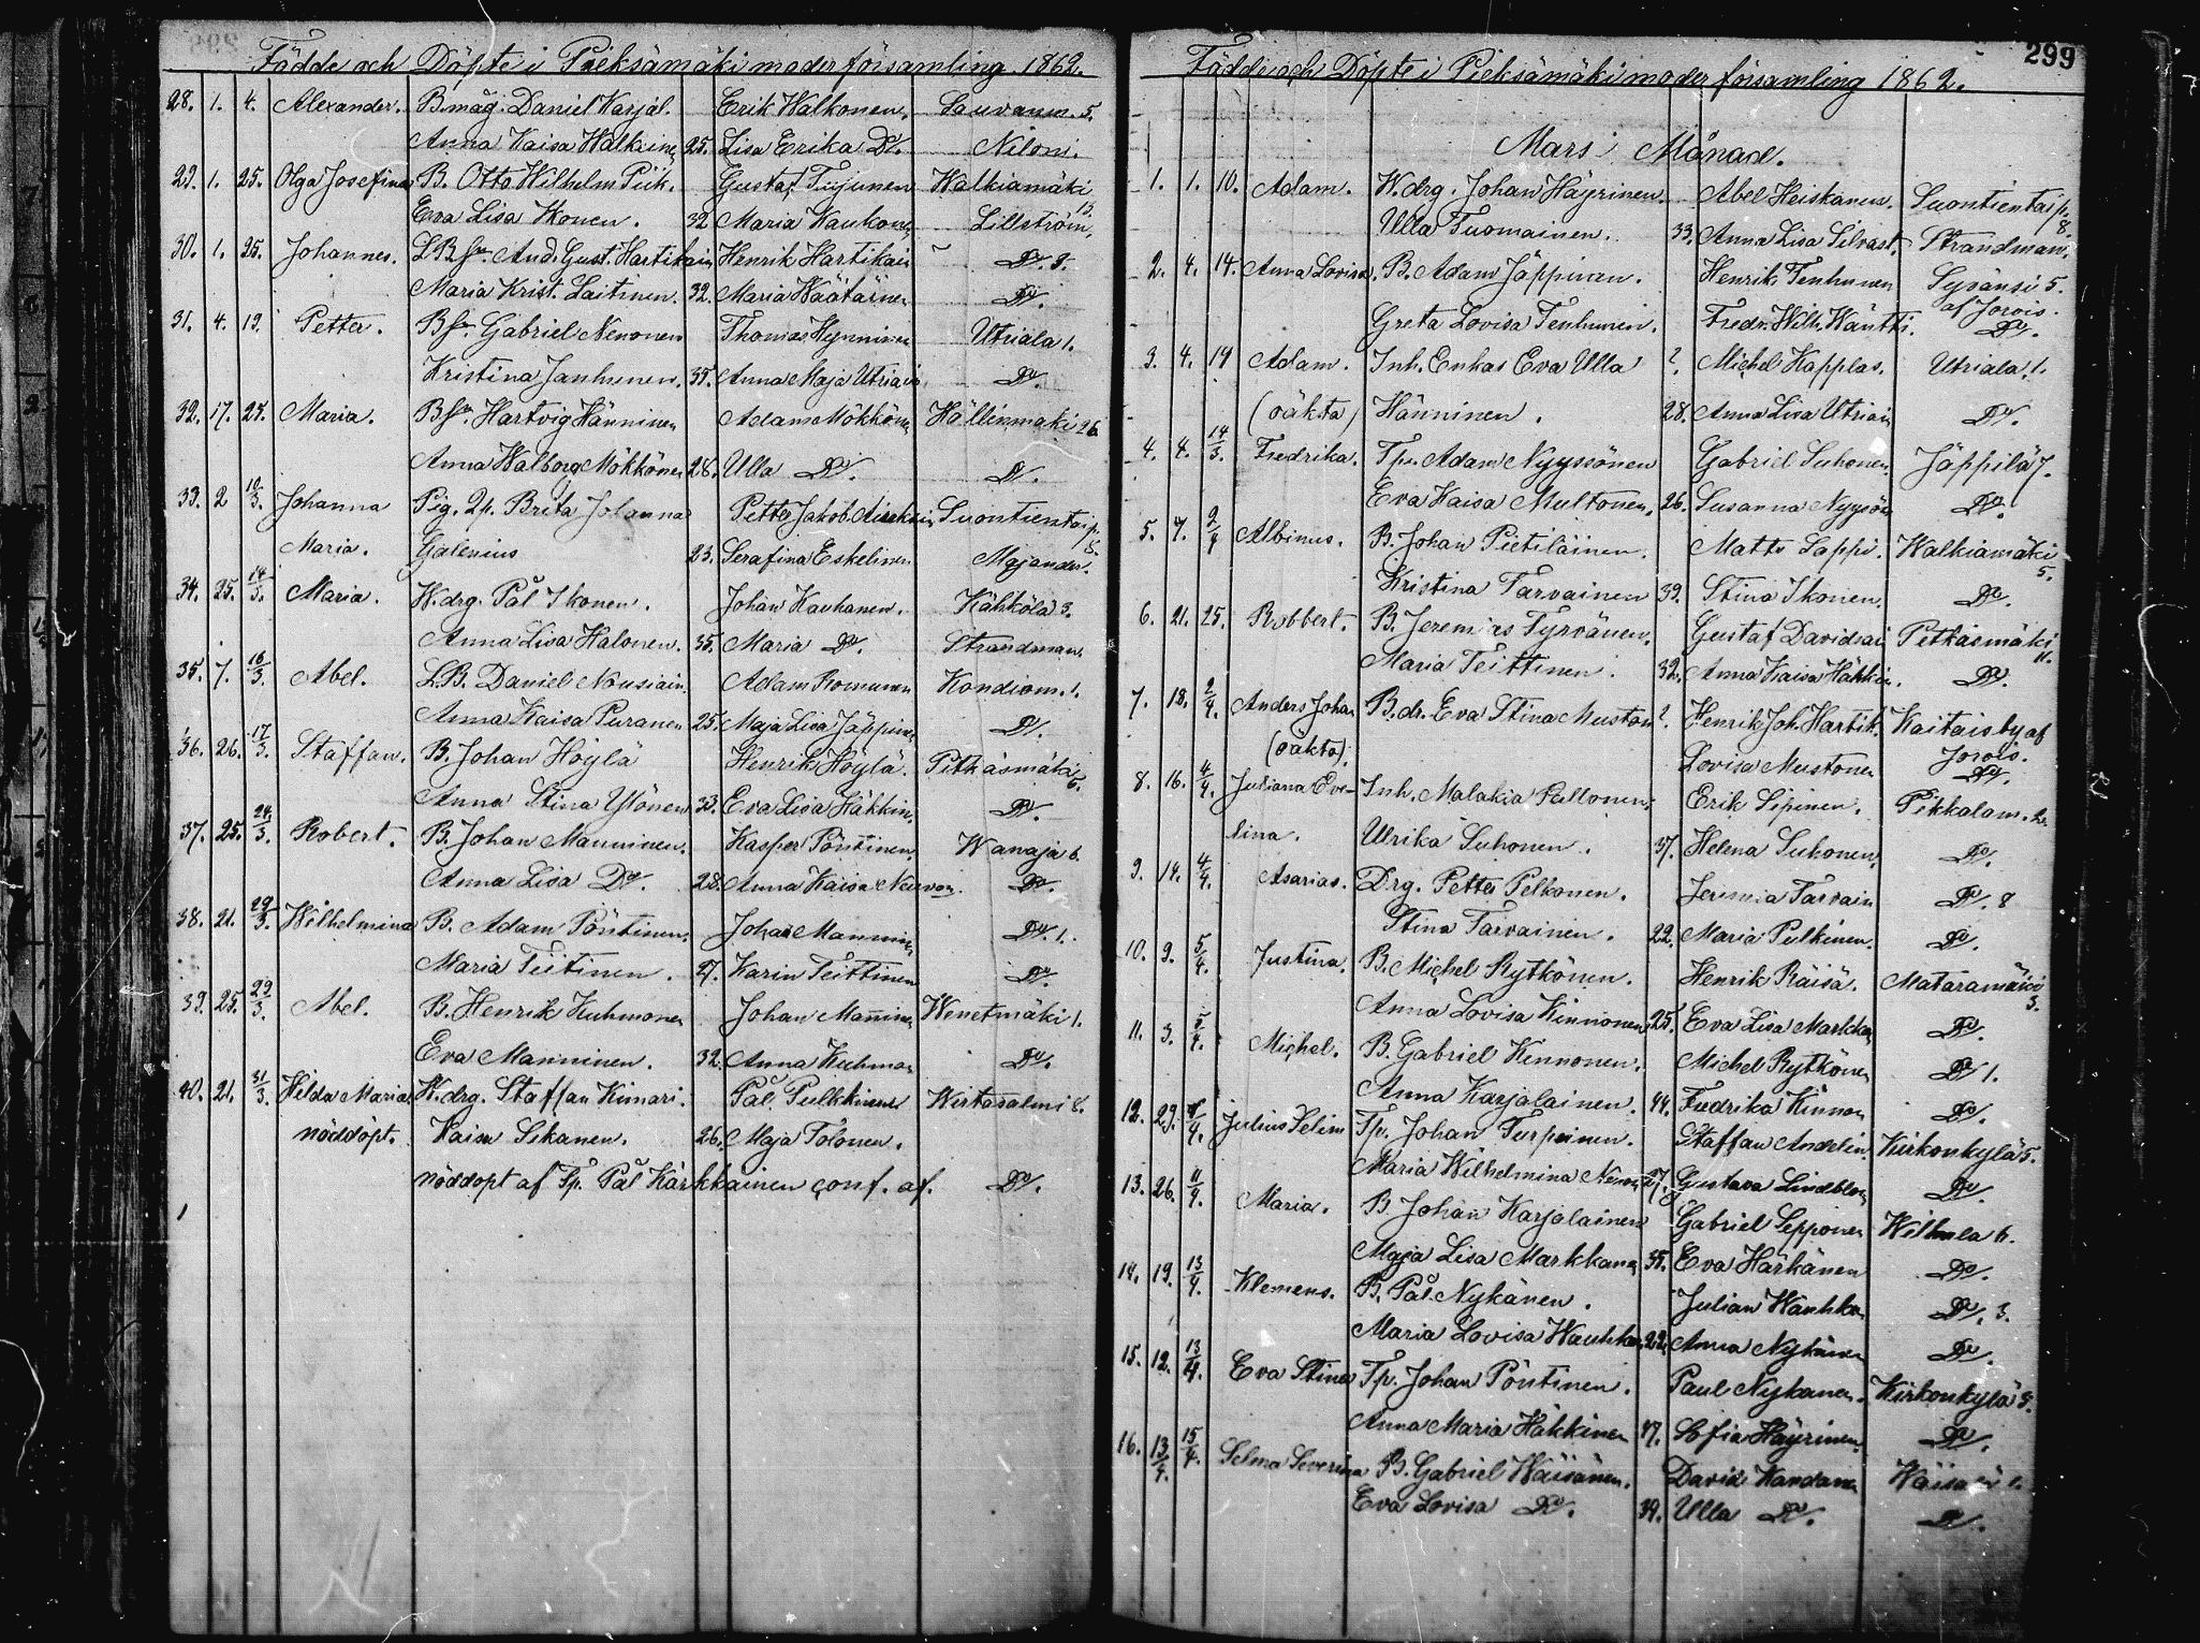 Födde och Döpte i Pieksämäki moderförsamling 1862.
28. 1. 4. Alexander. B.måg. Daniel Karjal. Erik Walkonen. Sauvanm. 5.
Anna Kaisa 25. Lisa Erika Do. Nilom.
29. 1. 25. Olga Josefina B. Otto Wilhelm Gustaf Walkiamäki 13.
Eva Lisa Ikonen. 32 Maria Kaukone Lillström.
30. 1. 25. Johannes. LBsn. And. Gust. Hartikain Henrik Hartikain Do. 8.
Maria Krist. Laitinen. 32. Maria Wäätäinen Do.
31. 4. 19. Petter. Bsn. Gabriel Nenonen Thomas Hynninen Utriala 1.
Kristina Janhunen. 35. Anna Maja Utriain Do.
32. 17. 25. Maria. Bsn. Hartvig Hänninen Adam Mökkönen Hällinmäki 26
Anna Walborg Mökkönen 28. Ulla Do. Do.
33. 2 10/3. Johanna Pig. Brita Johanna Petter Jakob Suontientaip. 8.
Maria. Galenius 23. Serafina Eskelinen Majander.
34. 25. 14/3. Maria. W.drg. Pål Ikonen. Johan Kauhanen. Kähkölä 3.
Anna Lisa Halonen. 35. Maria Do. Strandman
35. 7. 16/3. Abel. L.B. Daniel Nousiain. Adam Romunen Kondiom. 1.
Anna Kaisa Puranen 25. Maja Lisa Jäppinen Do.
36. 26. 17/3. Staffan. B. Johan Höylä Henrik Höylä. Pitkäsmäki 6.
Anna Stina Ylönen 33. Eva Lisa Häkkin. Do.
37. 25. 24/3. Robert. B. Johan Manninen. Kasper Pöntinen. Wanaja 6.
Anna Lisa Do. 28. Anna Kaisa Do.
38. 21. 29/3. Wilhelmina B. Adam Pöntinen. Johan Mannine Do. 1.
Maria Teitinen. 27. Karin Teittinen Do.
39. 25. 29/3. Abel. B. Henrik Kuhmonen Johan Mannine Wenetmäki 1.
Eva Manninen. 32. Anna Kuhmon Do.
40. 21. 31/3. Hilda Maria. W.drg. Staffan Kimari. Pål Pulkkinen Wirtasalmi 8.
nöddöpt. Kaisa Sikanen. 26. Maja Tolonen.
nöddöpt af Tp. Pål Kärkkäinen conf. af. Do.
299
Födde och Döpte i Pieksämäki moderförsamling 1862.
Mars Månad.
1. 1. 10. Adam. W.drg. Johan Häyrinen. Abel Heiskanen. Suontientaip. 8.
Ulla Tuomainen. 33. Anna Lisa Silvast. Strandman.
2. 4. 14. Anna Lovisa. B. Adam Jäppinen. Henrik Tenhunen Syvänsi 5.
af Jorois.
Greta Lovisa Tenhunen. Fredr. Wilh. Wäntti. Do.
3. 4. 19 Adam. Inh. Enkas Eva Ulla ? Michel Kapplas. Utriala 1.
(oäkta) Hänninen. 28. Anna Lisa Utriain Do.
4. 4. 14/3. Fredrika. Tp. Adam Nyyssönen Gabriel Suhonen. Jäppilä 7.
Eva Kaisa Multonen. 26. Susanna Nyysön Do.
5. 7. 2/4 Albinus. B. Johan Pietiläinen. Matts Lappi. Walkiamäki 5.
Kristina Tarvainen 39. Stina Ikonen. Do.
6. 21. 25. Robbert. B. Jeremias Tyrvänen. Gustaf Davidsai Pitkäsmäki 11.
Maria Teittinen. 32. Anna Kaisa Häkkin. Do.
7. 18. 2/4. Anders Johan B.dr. Eva Stina Muston ? Henrik Joh. Hartik. Kaitais by af
(oäkta). Jorois.
Lovisa Mustonen Do.
8. 16. 4/4. Juliana Eve- Inh. Malakia Pellonen. Erik Sipinen. Pikkalam. 2.
lina. Ulrika Suhonen. 37. Helena Suhonen. Do.
9. 14. 4/4. Asarias. Drg. Petter Pelkonen. Jeremia Tarvain Do. 8
Stina Tarvainen. 22. Maria Pulkinen. Do.
10. 9. 5/4. Justina. B. Michel Rytkönen. Henrik Räisä. 3.
Anna Lovisa Kinnonen 25. Eva Lisa Markka Do.
11. 3. 5/4. Michel. B. Gabriel Kinnonen. Michel Rytkönen Do 1.
Anna Karjalainen. 44. Fredrika Kinnon Do.
12. 29. Julius Selim Tp. Johan Turpeinen. Staffan Andelin. Kirkonkylä 5.
Maria Wilhelmina 27. Gustava Lindblom Do.
13. 26. 11/4. Maria. B. Johan Karjalainen Gabriel Sepponen 6.
Maja Lisa Markkana 35. Eva Härkänen Do.
14. 19. 13/4. Klemens. B. Pål Nykänen. Julian Do. 3.
Maria Lovisa 22. Anna Nykänen Do.
15. 12. 13/4. Eva Stina Tp. Johan Pöntinen. Paul Nykänen. Kirkonkylä 3.
Anna Maria Häkkinen 47. Sofia Häyrinen. Do.
16. 13/4. 15/4. Selma Severina B. Gabriel Wäisänen. David 1.
Eva Lovisa Do. 39. Ulla Do. Do.